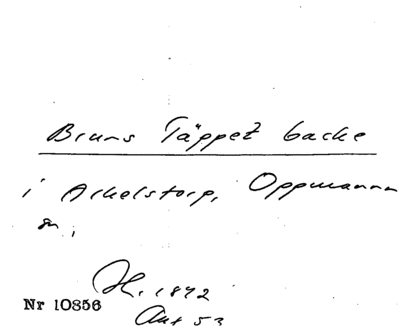 Bruns Täppet backe
i Arkelstorp, Oppmanna
sn,
H. 1842
Ant 53
Nr 10856